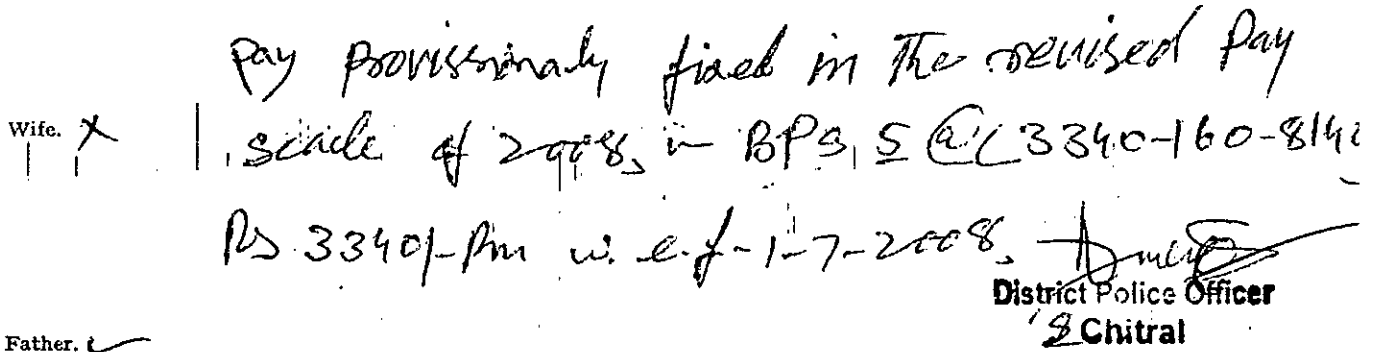 Pay Provissionaly fixed in the revised Pay
Wife. x scale of 2008, in BPS, 5 @ (3340-160-814
Rs. 3340/- Pm w.e.f-1-7-2008.
District Police Officer
Chitral
Father.